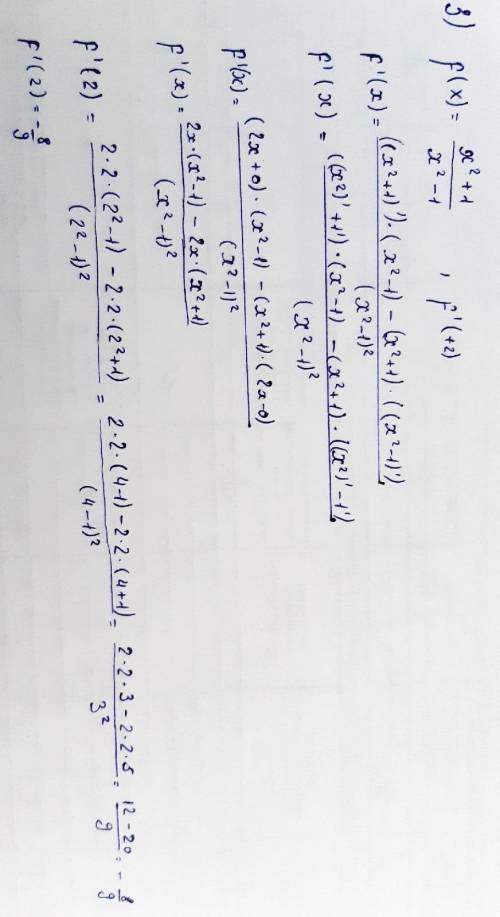 3) f(x) = (x²+1)/(x²-1) , f'(+2)
f'(x) = ((x²+1)')·(x²-1) - (x²+1)·((x²-1)') / (x²-1)²
f'(x) = ((x²)'+1')·(x²-1) - (x²+1)·((x²)'-1') / (x²-1)²
f'(x) = (2x+0)·(x²-1) - (x²+1)·(2x-0) / (x²-1)²
f'(x) = 2x·(x²-1) - 2x·(x²+1) / (x²-1)²
f'(2) = 2·2·(2²-1) - 2·2·(2²+1) / (2²-1)² = 2·2·(4-1) - 2·2·(4+1) / (4-1)² = 2·2·3 - 2·2·5 / 3² = 12-20 / 9 = -8/9
f'(2) = -8/9